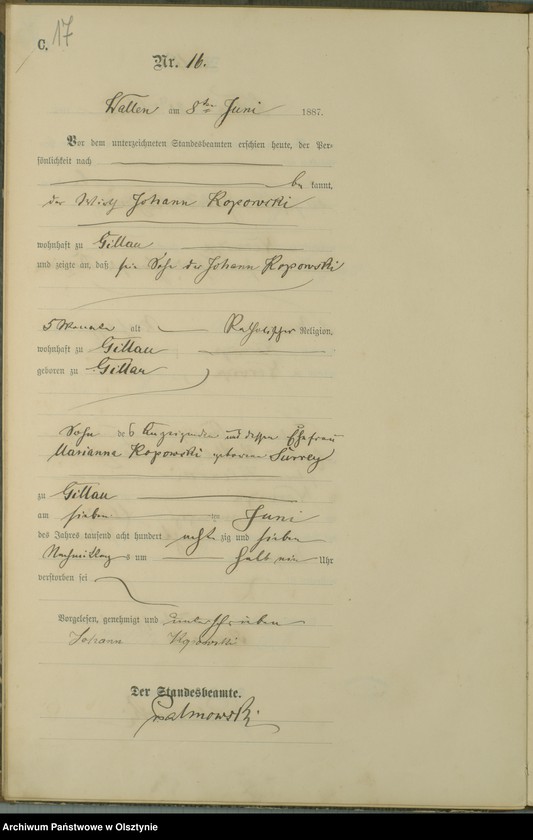 C. 17
Nr. 16.
Wallen am 8ten Juni 1887.
Vor dem unterzeichneten Standesbeamten erschien heute, der Per-
sönlichkeit nach
be kannt,
der Wirth Johann Kopowski
wohnhaft zu Gillau
und zeigte an, daß sein Sohn der Johann Kopowski
5 Monate alt Katholischer Religion,
wohnhaft zu Gillau
geboren zu Gillau
Sohn des Anzeigenden und dessen Ehefrau
Marianna Kopowski geborene
zu Gillau
am sieben ten Juni
des Jahres tausend acht hundert acht zig und sieben
Nachmittags um halb ein Uhr
verstorben sei
Vorgelesen, genehmigt und unterschrieben
Johann Kopowski
Der Standesbeamte.
Archiwum Państwowe w Olsztynie